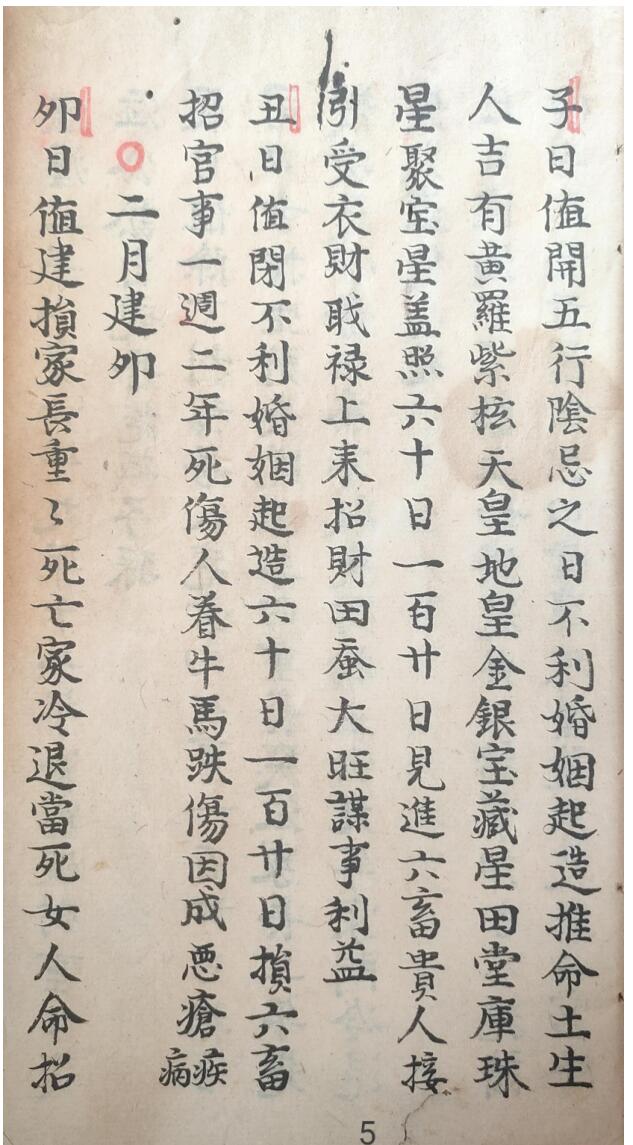 子日值開五行陰忌之日不利婚姻起造推命土生
人吉有黃羅紫梥天皇地皇金銀宝藏星田堂庫珠
星聚宝星盖照六十日一百廿日見進六畜貴人接
引受衣財职禄上来招財田蚕大旺謀事利益
丑日值閉不利婚姻起造六十日一百廿日損六畜
招官事一週二年死傷人眷牛馬跌傷因成悪瘡疾病
二月建卯
卯日值建損家長重〻死亡家冷退當死女人命招
5